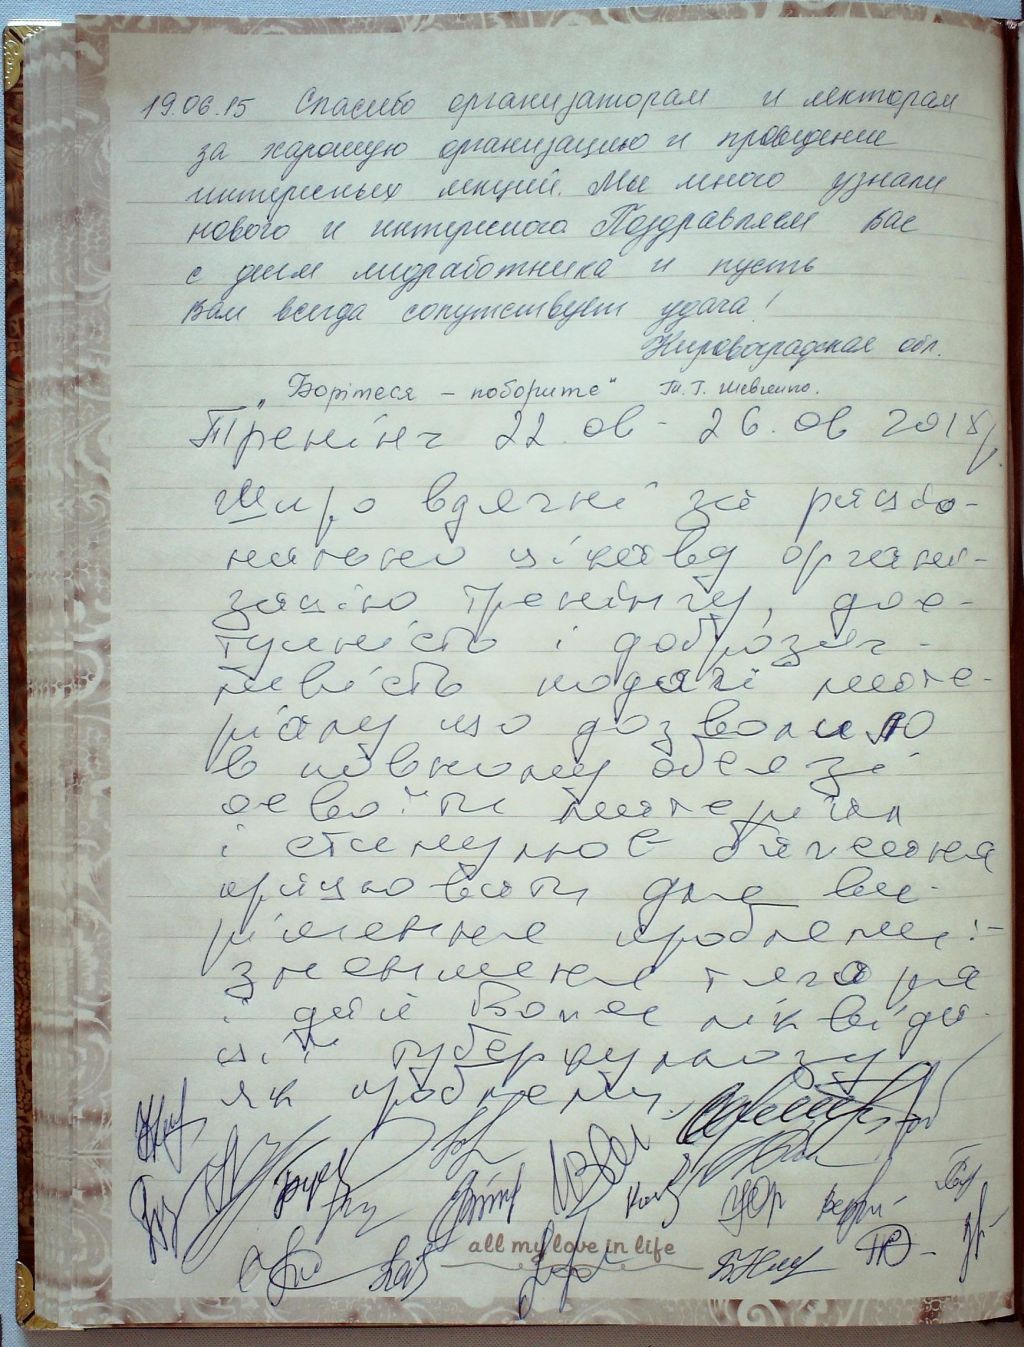 19.06.15 Спасибо организаторам и лекторам
за харошую организацию и проведение
интересных лекций. Мы много узнали
нового и интересного. Поздравляем Вас
с днем медработника и пусть
Вам всегда сопутствует удача!
Кировоградская обл.
„Борітеся – поборите" Т. Г. Шевченко.
Тренінг 22.06 - 26.06 2015р.
Щиро вдячні за раціо-
нальну цікаву органі-
зацію тренінгу, дос-
тупність і доброзич-
ливість подачі мате-
ріалу що дозволило
в повному обсязі
освоїти матеріал
і стимулює бажання
працювати для ви-
рішення проблеми:-
зменшення тягаря
і далі ліквіда-
ції туберкульозу
як проблеми.
all my love in life